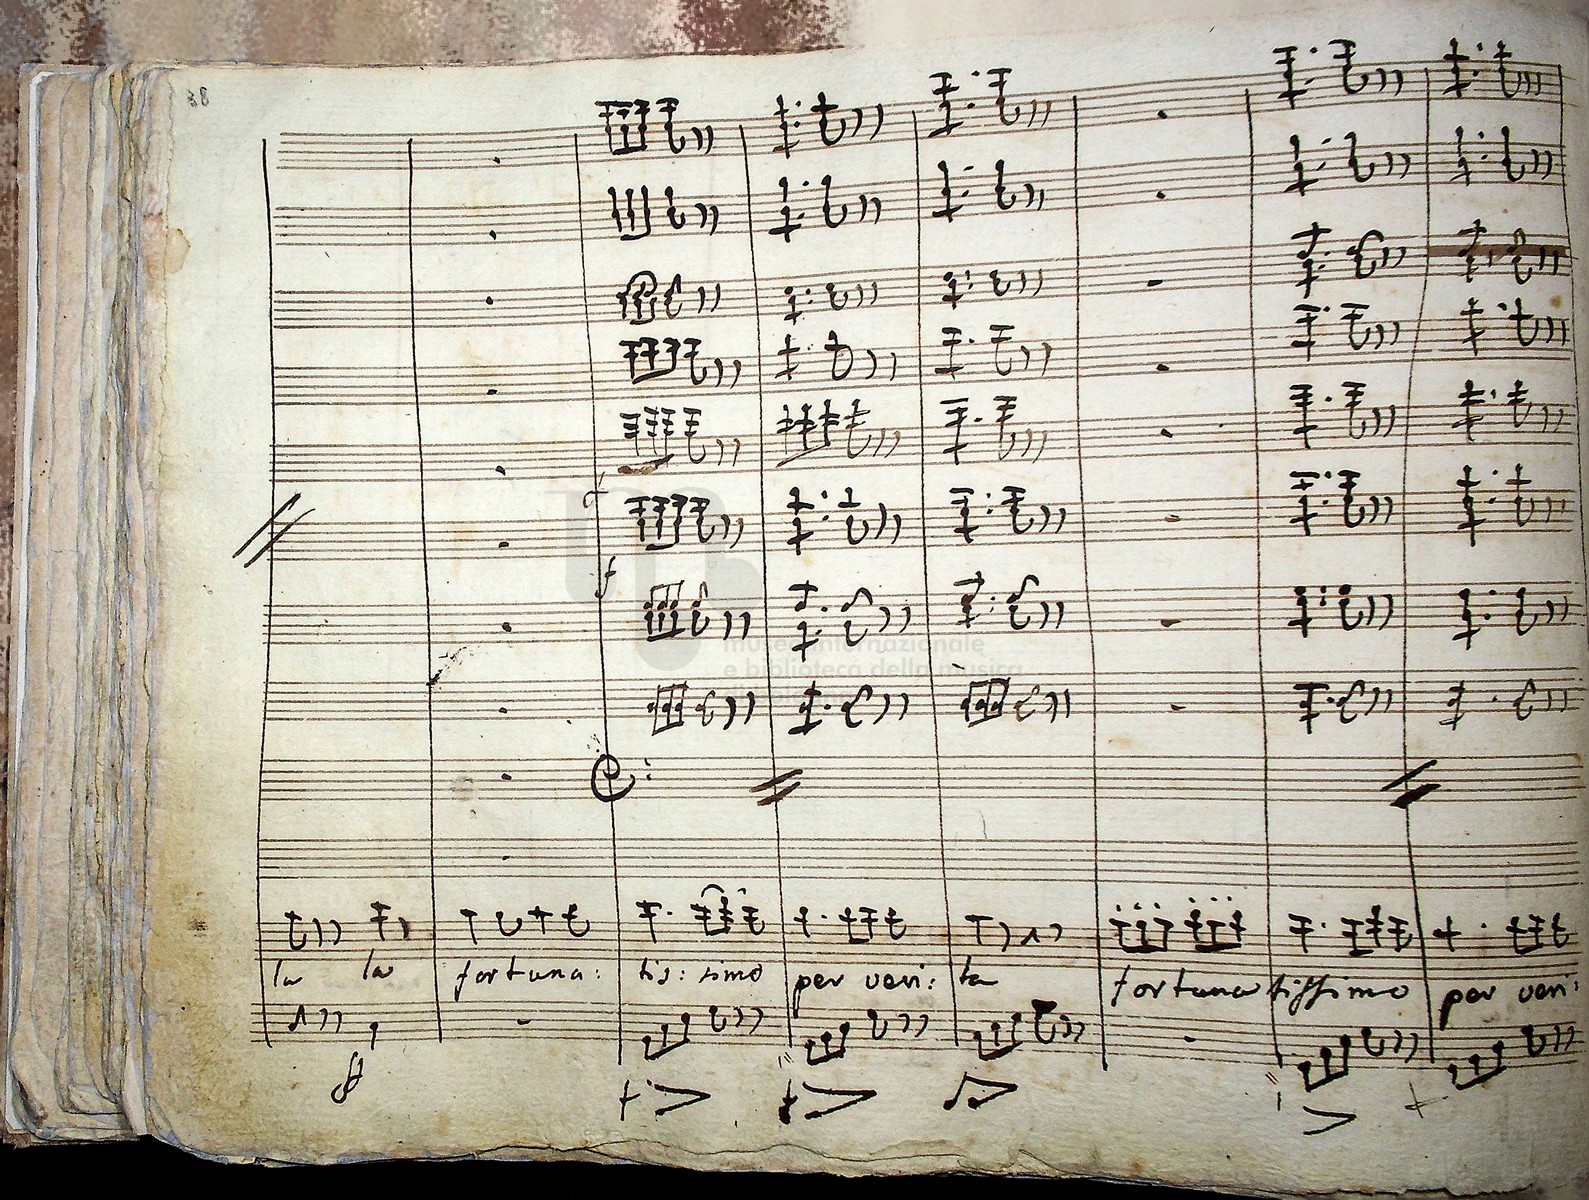 38
f
f
museo internazionale
e biblioteca della musica
la la fortuna: tis: simo per veri: ta fortuna tissimo per veri: